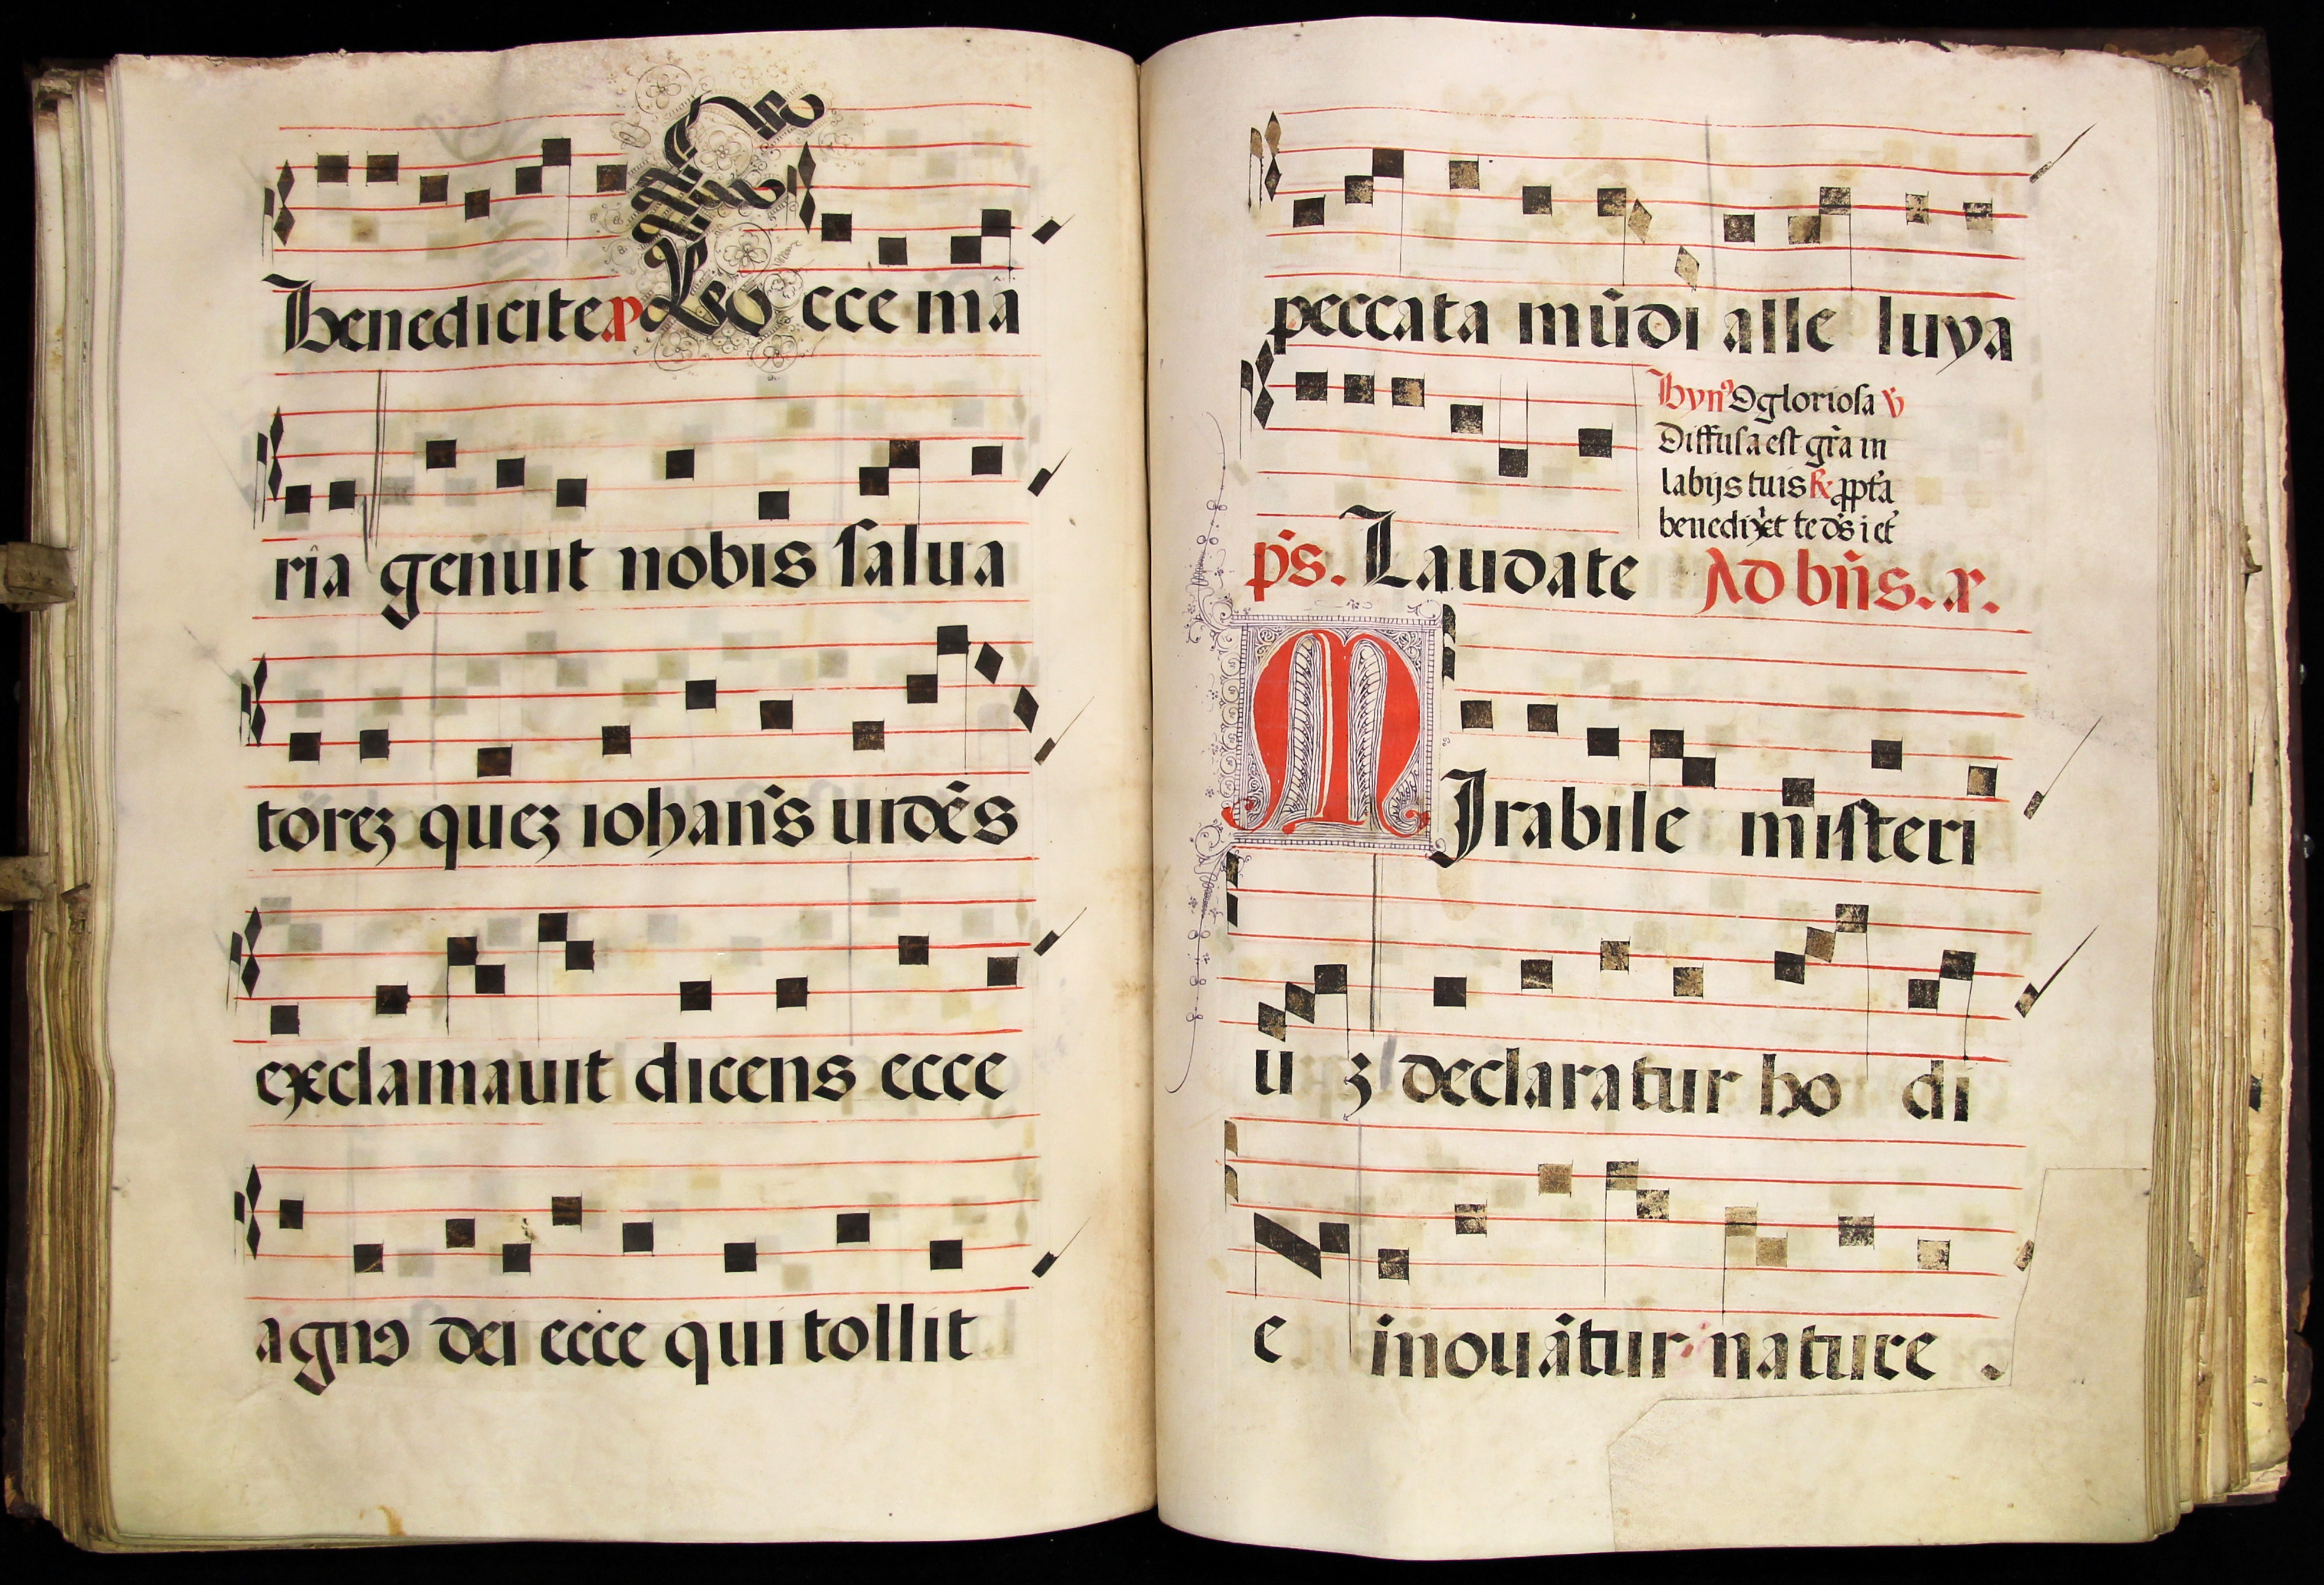 Benedicite a Ecce mã
ria genuit nobis ſalua
toreꝫ queꝫ iohan̄s uidẽs
exclamauit dicens ecce
agnꝰ dei ecce qui tollit
peccata mũdi alle luya
Hyn̄ O glorioſa ℣
Diffuſa eſt gr̃a in
labijs tuis ꝓpt̃a
benedix̃it te ds̃ i et̃
p̃s. Laudate Ad bn̄s. a.
MIrabile miſteri
u ꝫ declaratur ho di
e inouãtur nature